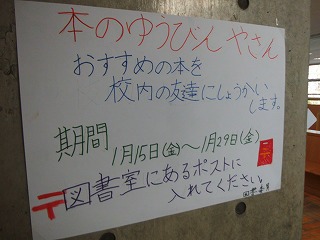 本のゆうびんやさん
おすすめの本を
校内の友達にしょうかい
します。
期間
1月15日(金)〜1月29日(金)
〒図書室にあるポストに
入れてください